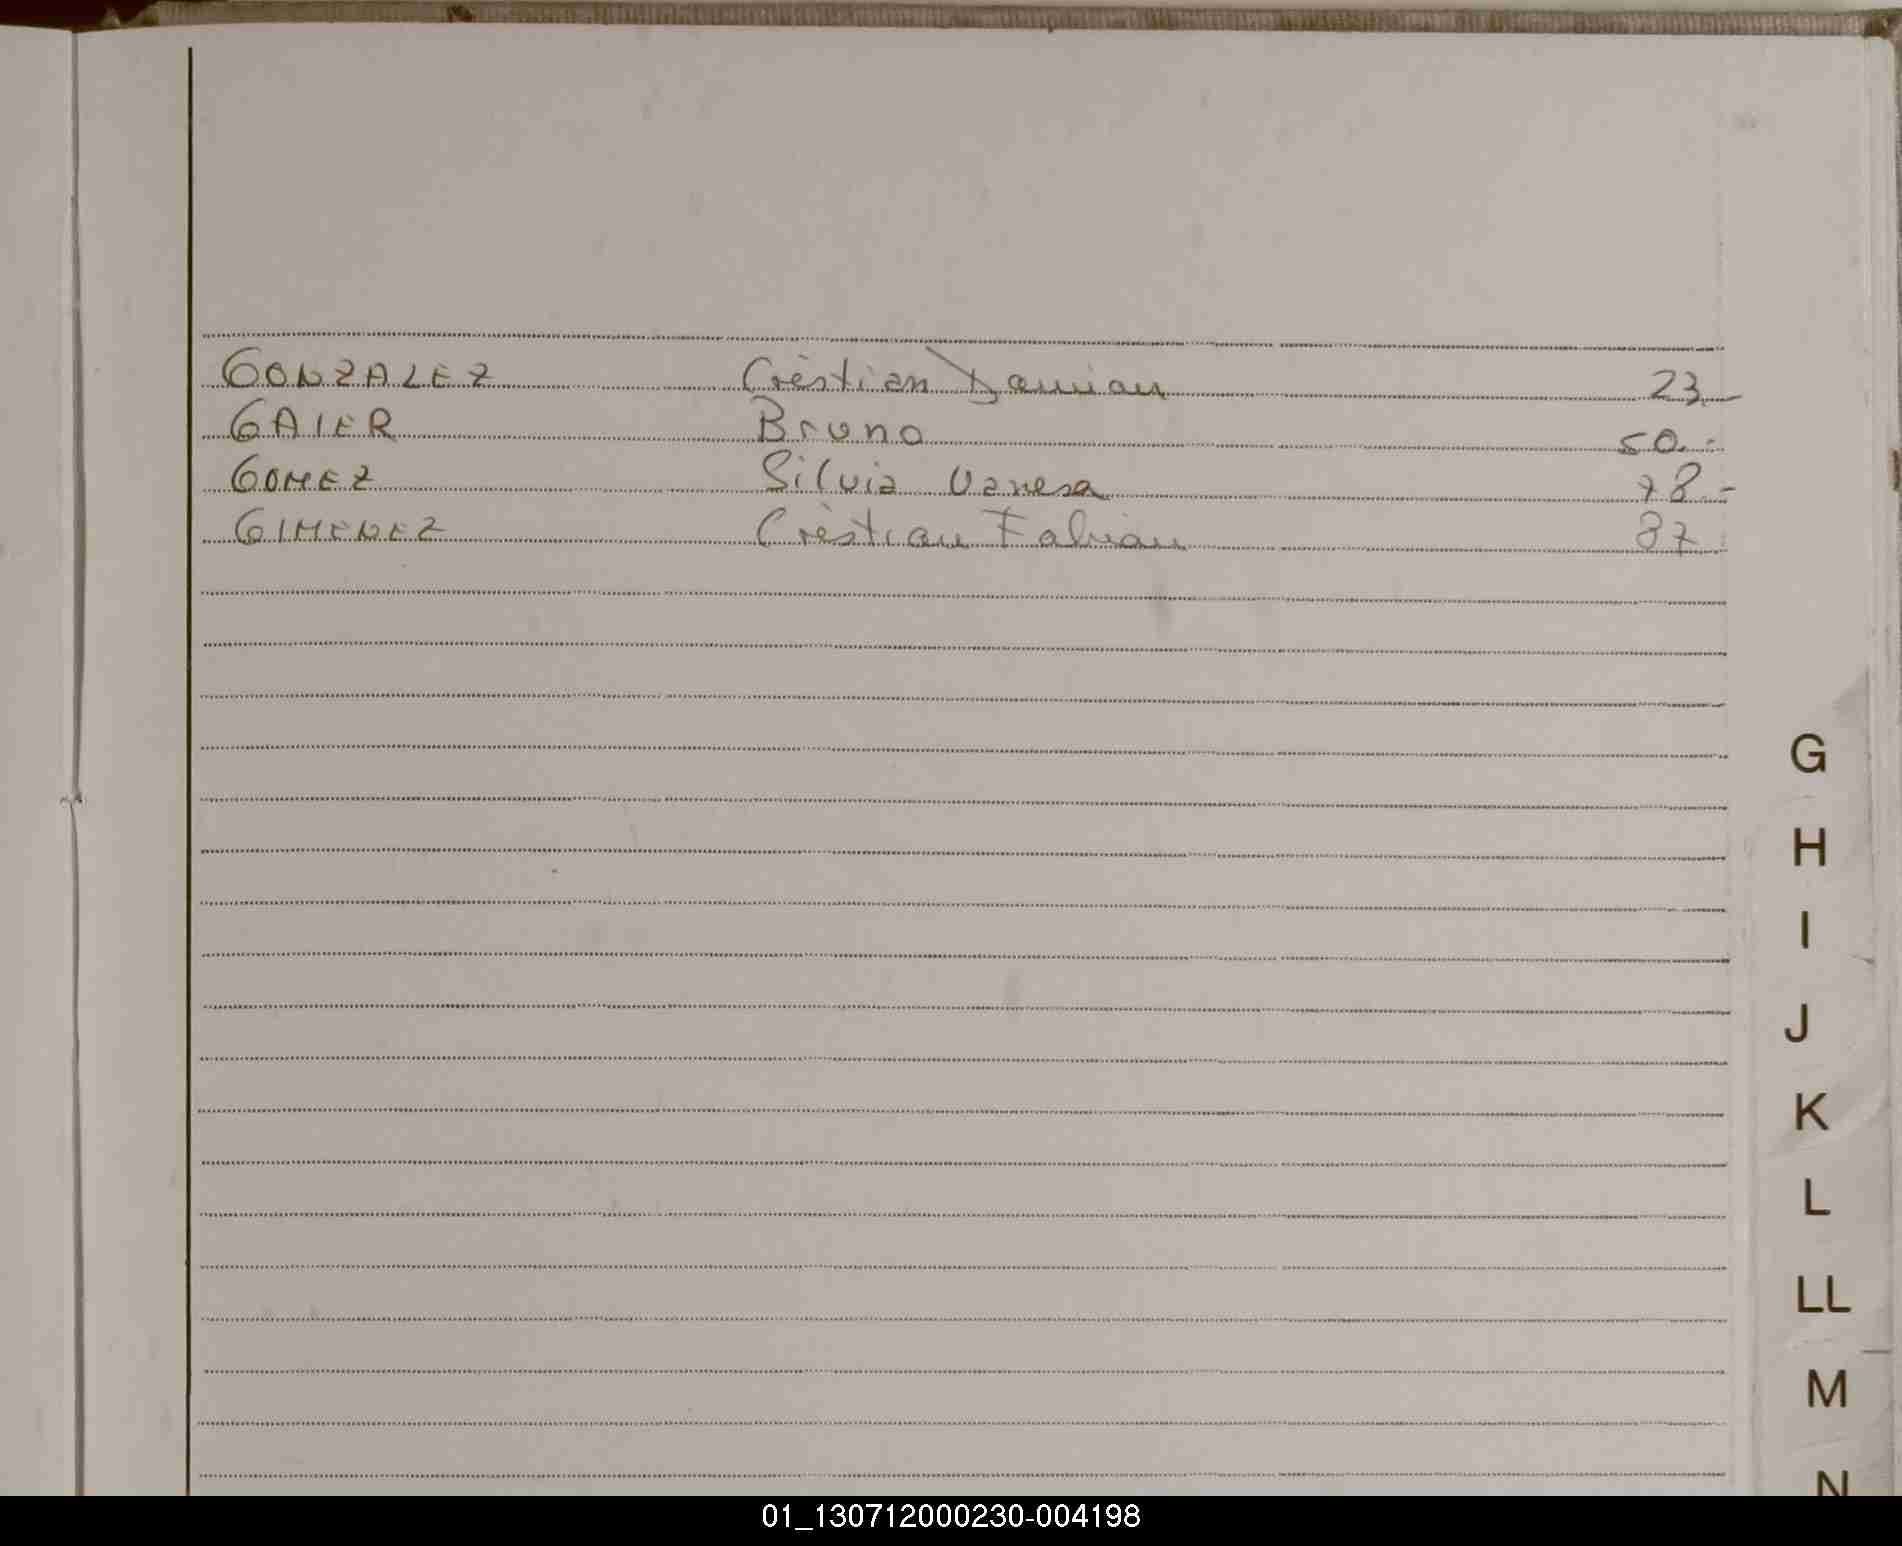 GONZALEZ Cristian Damian 23.-
GAIER Bruno 50.-
GOMEZ Silvia Vanesa 78.-
GIMENEZ Cristian Fabian 87
G
H
I
J
K
L
LL
M
N
01_130712000230-004198